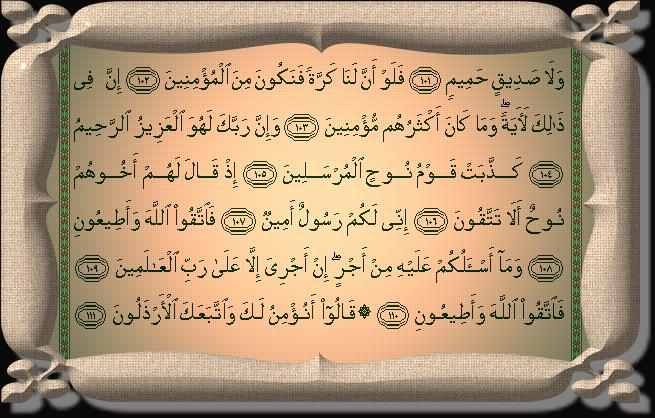 وَلَا صَدِيقٍ حَمِيمٍ ١٠١ فَلَوْ أَنَّ لَنَا كَرَّةً فَنَكُونَ مِنَ ٱلْمُؤْمِنِينَ ١٠٢ إِنَّ فِى
ذَٰلِكَ لَأٓيَةًۖ وَمَا كَانَ أَكْثَرُهُم مُّؤْمِنِينَ ١٠٣ وَإِنَّ رَبَّكَ لَهُوَ ٱلْعَزِيزُ ٱلرَّحِيمُ
١٠٤ كَذَّبَتْ قَوْمُ نُوحٍ ٱلْمُرْسَلِينَ ١٠٥ إِذْ قَالَ لَهُمْ أَخُوهُمْ
نُوحٌ أَلَا تَتَّقُونَ ١٠٦ إِنِّى لَكُمْ رَسُولٌ أَمِينٌ ١٠٧ فَٱتَّقُوا۟ ٱللَّهَ وَأَطِيعُونِ
١٠٨ وَمَآ أَسْـَٔلُكُمْ عَلَيْهِ مِنْ أَجْرٍۖ إِنْ أَجْرِىَ إِلَّا عَلَىٰ رَبِّ ٱلْعَـٰلَمِينَ ١٠٩
فَٱتَّقُوا۟ ٱللَّهَ وَأَطِيعُونِ ١١٠ ۞ قَالُوٓا۟ أَنُؤْمِنُ لَكَ وَٱتَّبَعَكَ ٱلْأَرْذَلُونَ ١١١